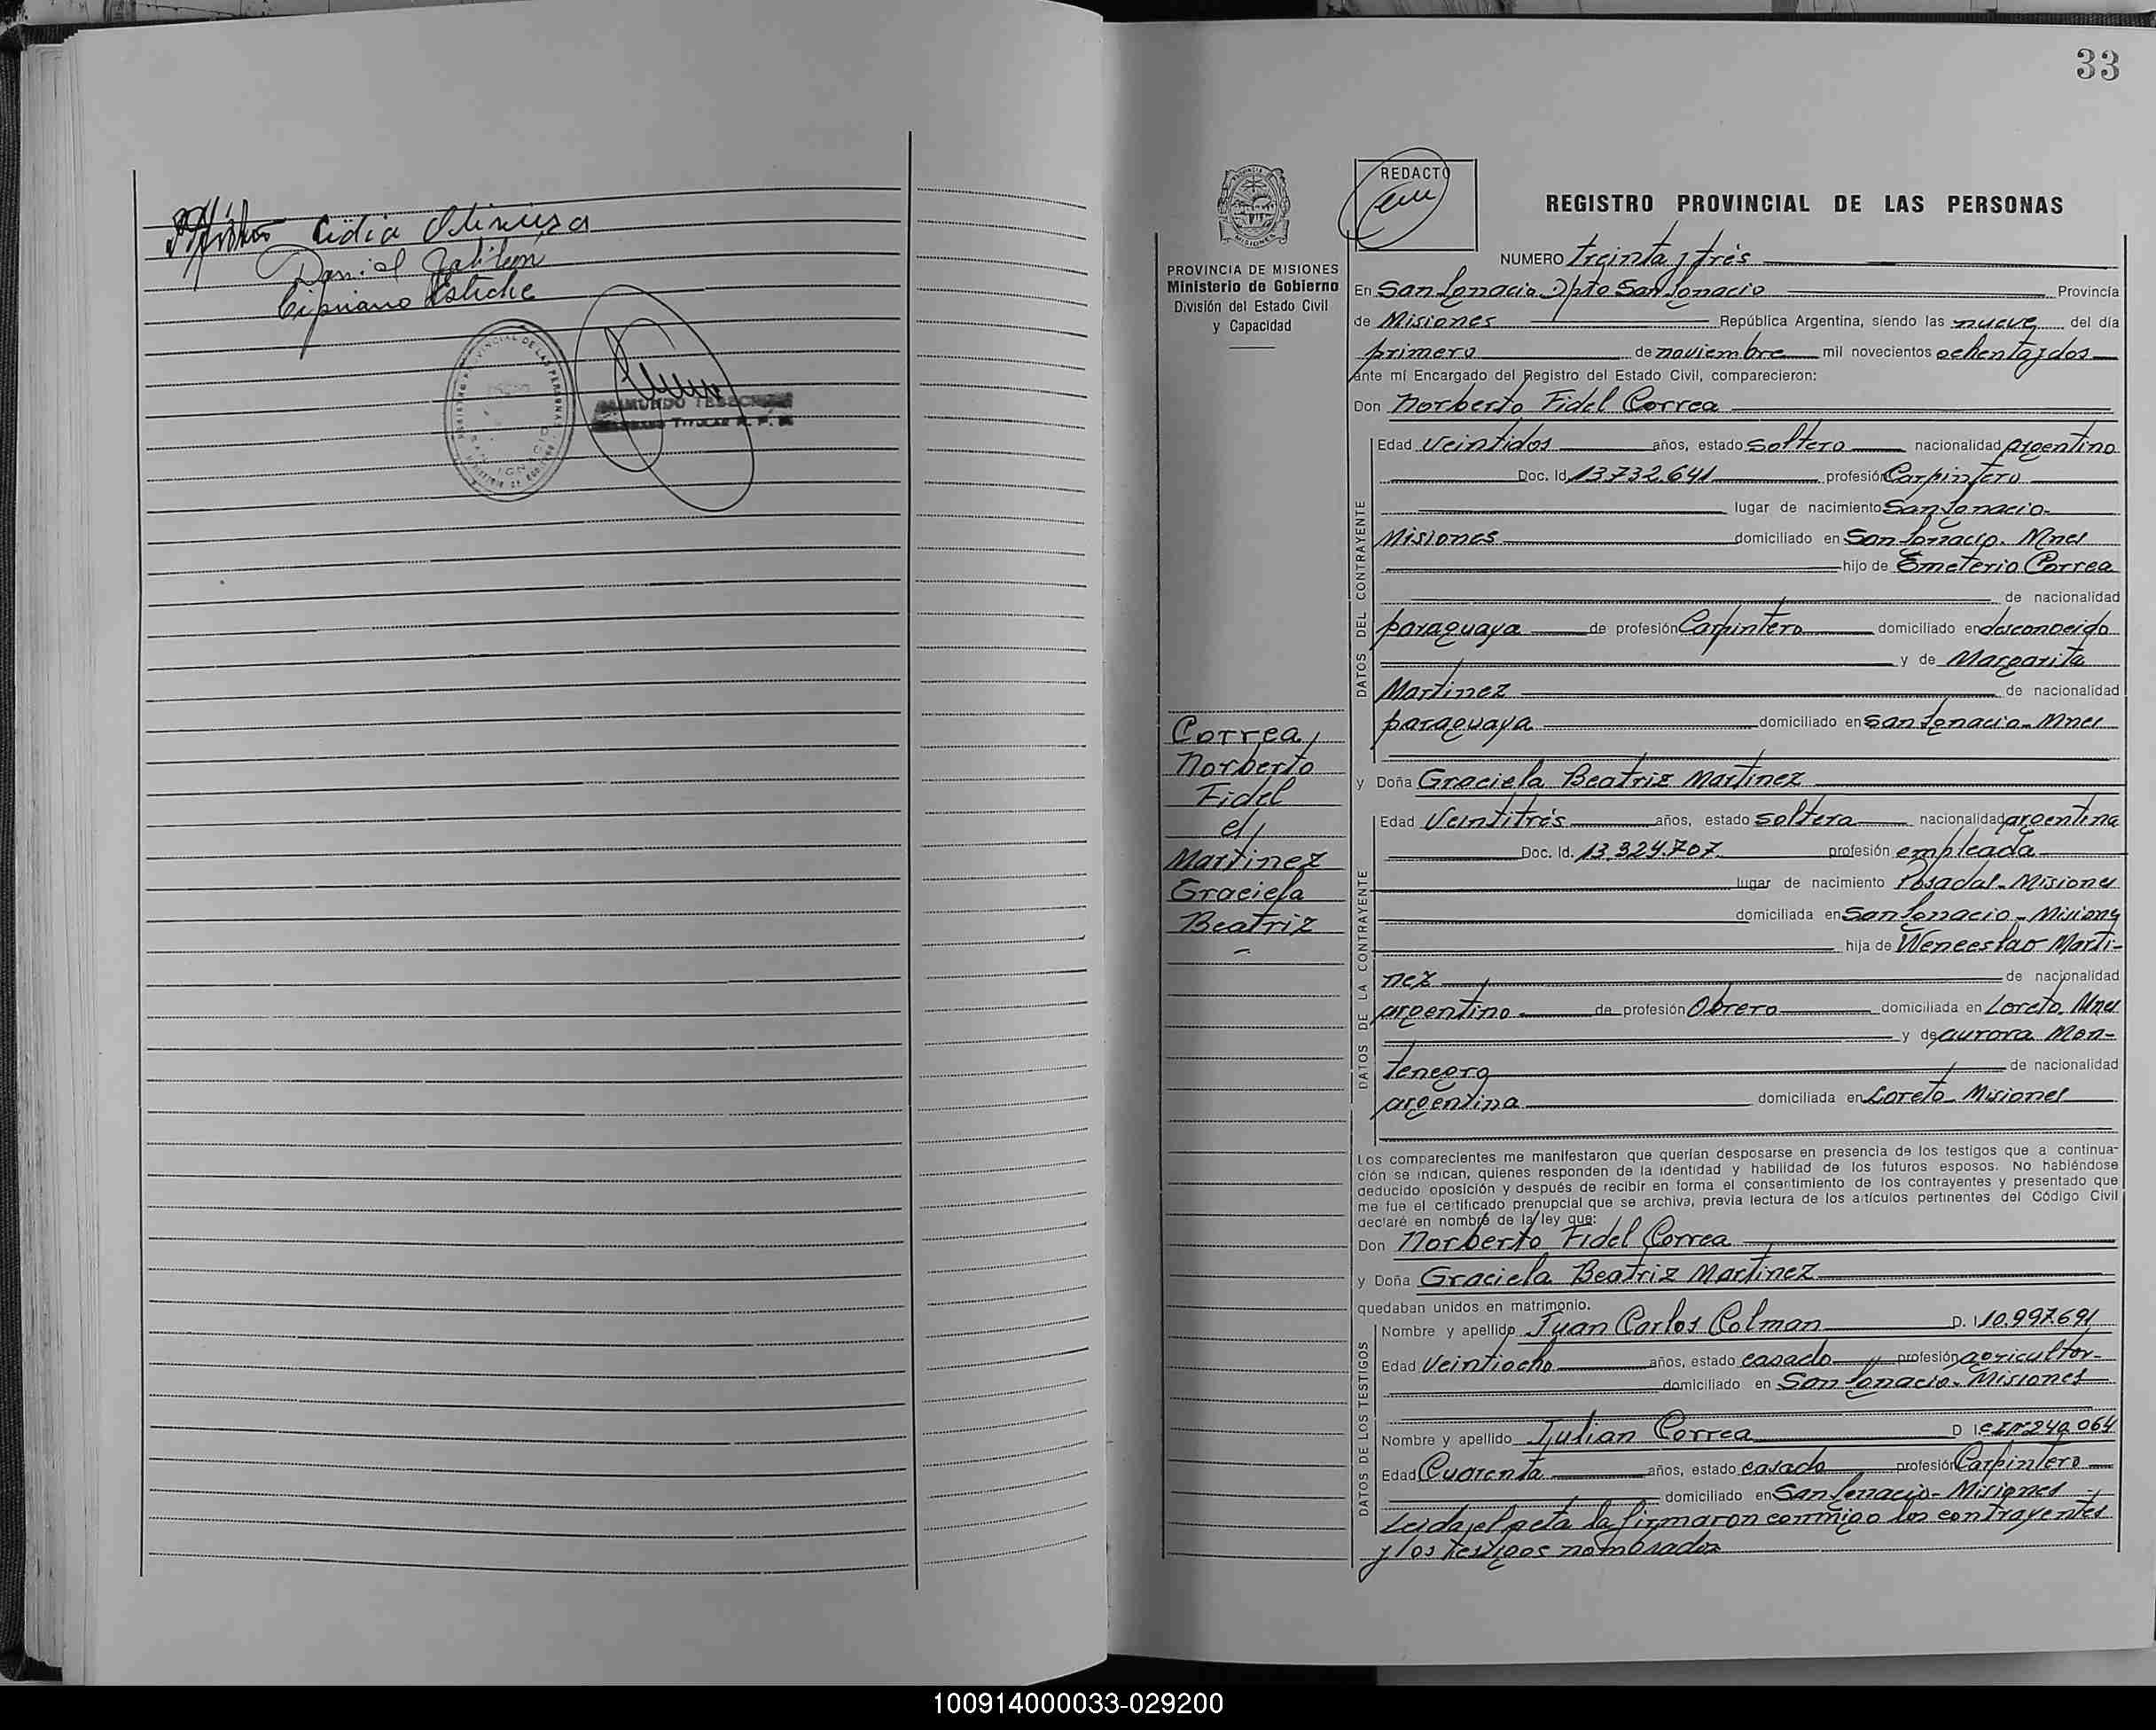 Lidia Olivera
Daniel
Cipriano
REGISTRO PROVINCIAL DE LAS PERSONAS
SAN IGNACIO
33
REDACTO
REGISTRO PROVINCIAL DE LAS PERSONAS
PROVINCIA DE MISIONES
Ministerio de Gobierno
División del Estado Civil
y Capacidad
Correa,
Norberto
Fidel
c/
Martinez
Graciela
Beatriz
NUMERO treinta y trés
En San Ignacio Dpto San Ignacio Provincia
de Misiones República Argentina, siendo las nueve del día
primero de noviembre mil novecientos ochenta y dos
ante mí Encargado del Registro del Estado Civil, comparecieron:
Don Norberto Fidel Correa
DATOS DEL CONTRAYENTE
Edad Veintidos años, estado soltero nacionalidad argentino
Doc. Id. 13.732.641 profesión Carpintero
lugar de nacimiento San Ignacio-
Misiones domiciliado en San Ignacio. Mnes
hijo de Emeterio Correa
de nacionalidad
paraguaya de profesión Carpintero domiciliado en desconocido
y de Margarita
Martinez de nacionalidad
paraguaya domiciliado en San Ignacio-Mnes
y Doña Graciela Beatriz Martinez
DATOS DE LA CONTRAYENTE
Edad Veintitrés años, estado soltera nacionalidad argentina
Doc. Id. 13.324.707 profesión empleada
lugar de nacimiento Posadas-Misiones
domiciliada en San Ignacio-Misiones
hija de Wenceslao Marti-
nez de nacionalidad
argentino de profesión Obrero domiciliada en Loreto, Mnes
y de aurora Mon-
tenegro de nacionalidad
argentina domiciliada en Loreto-Misiones
Los comparecientes me manifestaron que querían desposarse en presencia de los testigos que a continua-
ción se indican, quienes responden de la identidad y habilidad de los futuros esposos. No habiéndose
deducido oposición y después de recibir en forma el consentimiento de los contrayentes y presentado que
me fue el certificado prenupcial que se archiva, previa lectura de los artículos pertinentes del Código Civil
declaré en nombre de la ley que:
Don Norberto Fidel Correa
y Doña Graciela Beatriz Martinez
quedaban unidos en matrimonio.
DATOS DE LOS TESTIGOS
Nombre y apellido Juan Carlos Colman D. I. 10.997.691
Edad Veintiocho años, estado casado profesión agricultor-
domiciliado en San Ignacio-Misiones
Nombre y apellido Julian Correa D I. 240.064
Edad Cuarenta años, estado casado profesión Carpintero
domiciliado en San Ignacio-Misiones
Leida el acta la firmaron conmigo los contrayentes
y los testigos nombrados
100914000033-029200